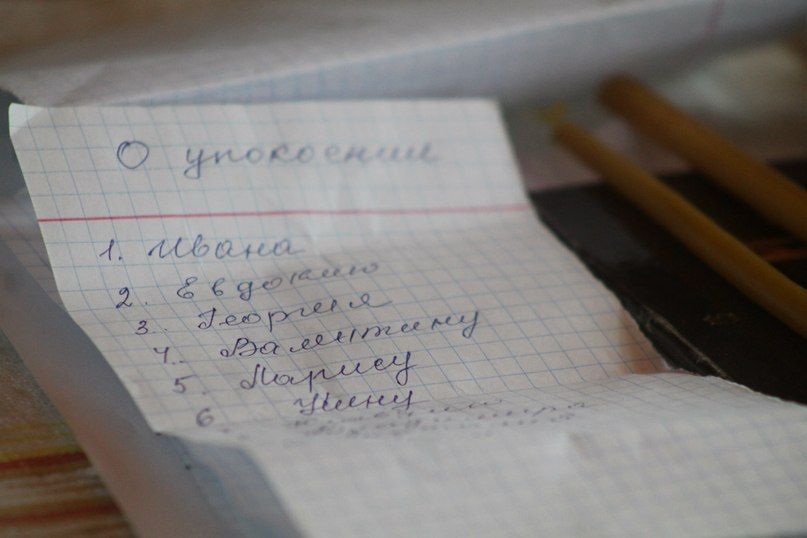 О упокоении
1. Ивана
2. Евдокию
3. Георгия
4. Валентину
5. Ларису
6. Нину